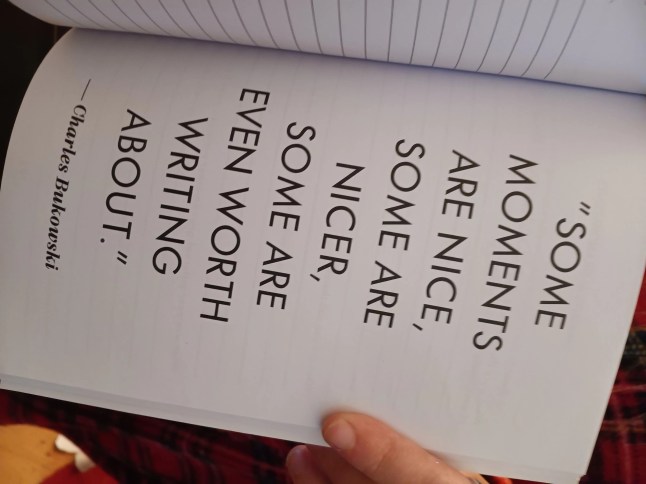 "SOME
MOMENTS
ARE NICE,
SOME ARE
NICER,
SOME ARE
EVEN WORTH
WRITING
ABOUT."
—Charles Bukowski